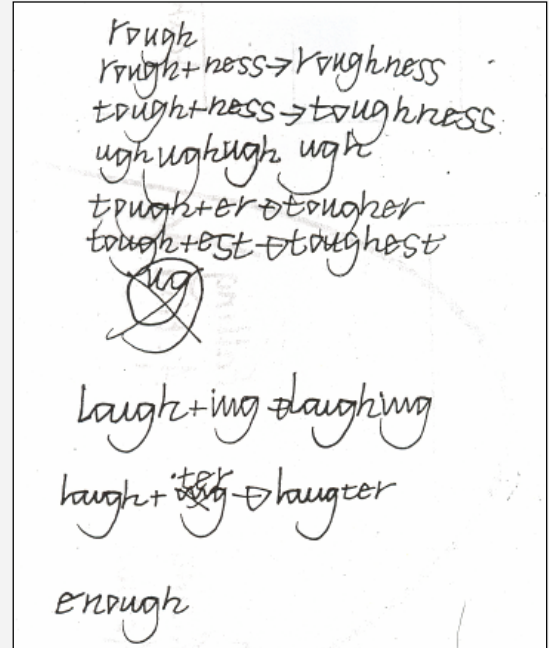 rough
rough+ness→roughness
tough+ness→toughness
ughughugh ugh
tough+er→tougher
tough+est→toughest
ug
Laugh+ing→laughing
laugh+ter→laugter
enough